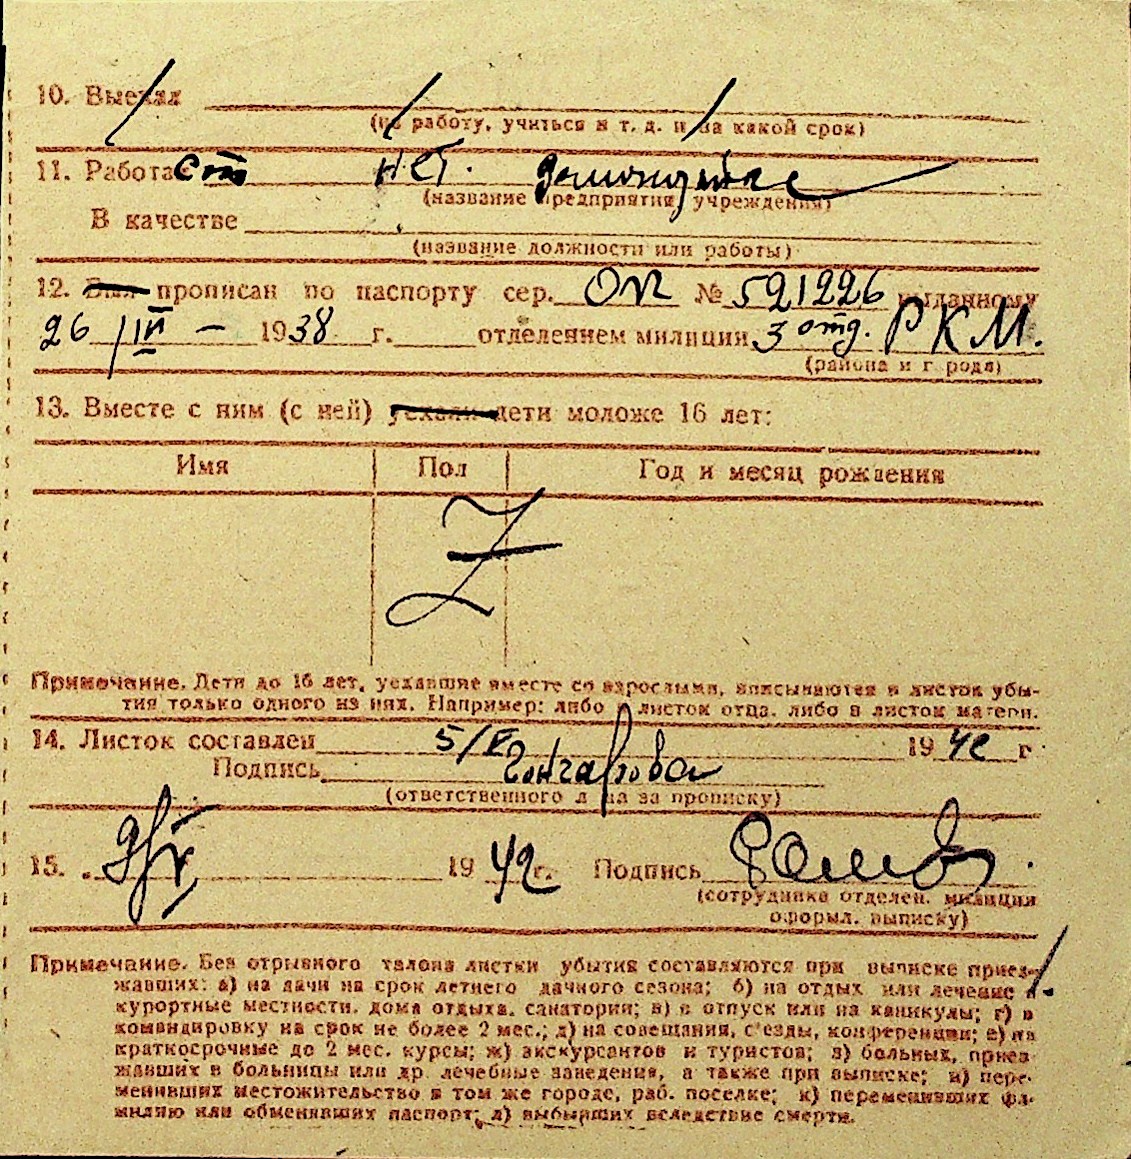 10. Выехал
(на работу, учиться и т. д. и на какой срок)
11. Работает нет.
(название предприятия, учреждения)
В качестве
(название должности или работы)
12. Был прописан по паспорту сер. ОП № 521226 выданному
26/III – 1938 г. отделением милиции 3 отд. РКМ.
(района и города)
13. Вместе с ним (с ней) уехали дети моложе 16 лет:
Имя Пол Год и месяц рождения
Z
Примечание. Дети до 16 лет, уехавшие вместе со взрослыми, вписываются в листок убы-
тия только одного из них. Например: либо в листок отца, либо в листок матери.
14. Листок составлен 5/V 1942 г
Подпись Гончарова
(ответственного лица за прописку)
15. 9/V 1942 г. Подпись
(сотрудника отделен. милиции
оформл. выписку)
Примечание. Без отрывного талона листки убытия составляются при выписке приез-
жавших: а) на дачи на срок летнего дачного сезона; б) на отдых или лечение в
курортные местности, дома отдыха, санатории; в) в отпуск или на каникулы; г) в
командировку на срок не более 2 мес.; д) на совещания, с'езды, конференции; е) на
краткосрочные до 2 мес. курсы; ж) экскурсантов и туристов; з) больных, приез-
жавших в больницы или др. лечебные заведения, а также при выписке; и) пере-
менивших местожительство в том же городе, раб. поселке; к) переменивших фа-
милию или обменявших паспорт; л) выбывших вследствие смерти.